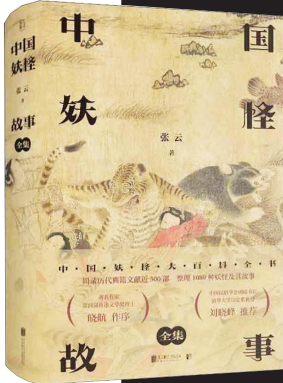 中国
妖怪
故事
全集
张云
著
中国
妖怪
张云
著
中·国·妖·怪·大·百·科·全·书
阅遍历代典籍文献近500部 整理1080种妖怪及其故事
晓航 作序
刘晓峰 推荐
全集
故事